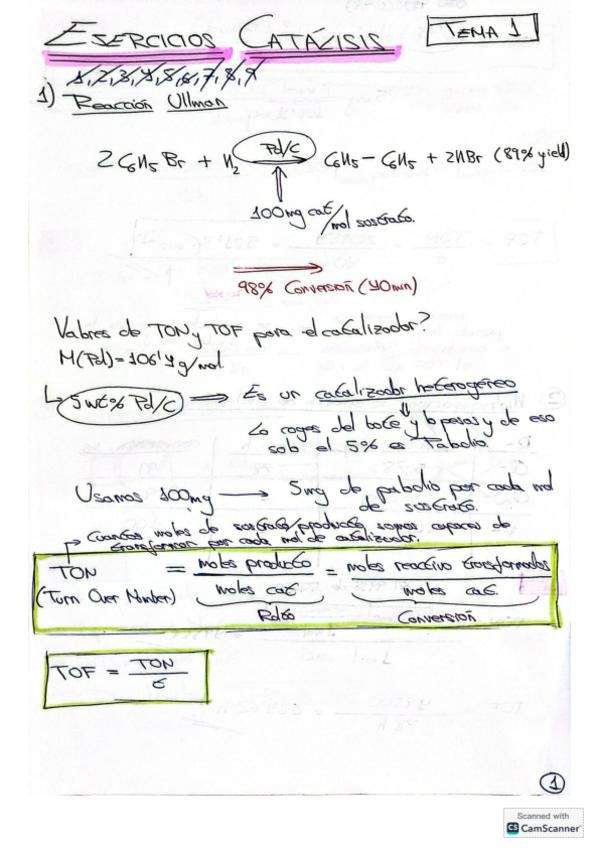 EJERCICIOS CATÁLISIS TEMA 1
1,2,3,4,5,6,7,8,9
1) Reacción Ullman
2 C6H5 Br + H2 Pd/C C6H5 - C6H5 + 2HBr (89% yield)
100mg cat/mol sustrato.
98% Conversión (40min)
Valores de TON y TOF para el catalizador?
M(Pd)=106'4 g/mol
5 wt% Pd/C ⟹ Es un catalizador heterogéneo
Lo coges del bote y lo pesas y de eso
solo el 5% es Paladio.
Usamos 100mg ⟶ 5mg de paladio por cada mol
de sustrato.
Cuantos moles de sustrato/producto somos capaces de
transformar por cada mol de catalizador.
TON = moles producto / moles cat = moles reactivo transformados / moles cat.
(Turn Over Number) Rdto Conversión
TOF = TON / t
1
Scanned with
CS CamScanner